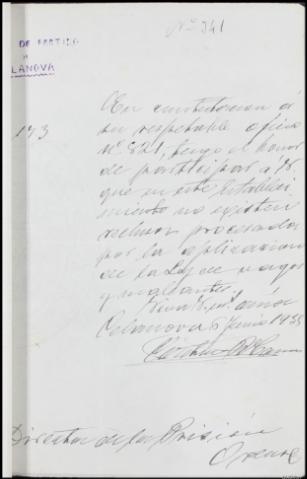 Nº 341
DE PARTIDO
LANOVA
173
En contestacion á
su respetable oficio
nº 821, tengo el honor
de participar á V.
que en este Estableci-
miento no existen
reclusos procesados
por la aplicacion
de la Ley de vagos
y maleantes.
Viva V. ms. años
Celanova 6 Junio 1935
Director de la Prisión
Orense